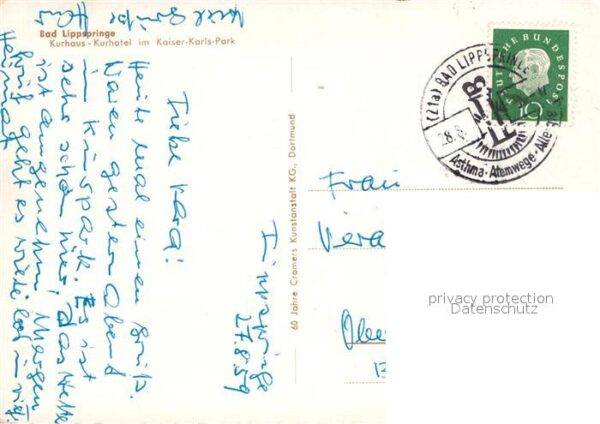 Bad Lippspringe
Kurhaus - Kurhotel im Kaiser-Karls-Park
Lippspringe
27.8.59
Liebe Vera!
Heute mal einen Gruß.
Waren gestern Abend
im Kurpark. Es ist
sehr schön hier, das Wetter
ist angenehm. Morgen
früh geht es wieder
Heimat.
Viele Grüße
60 Jahre Cramers Kunstanstalt KG., Dortmund
DEUTSCHE BUNDESPOST
10
(21a) BAD LIPPSPRINGE
28.8.
Asthma-Atemwege-Alle
Frau
Vera
privacy protection
Datenschutz